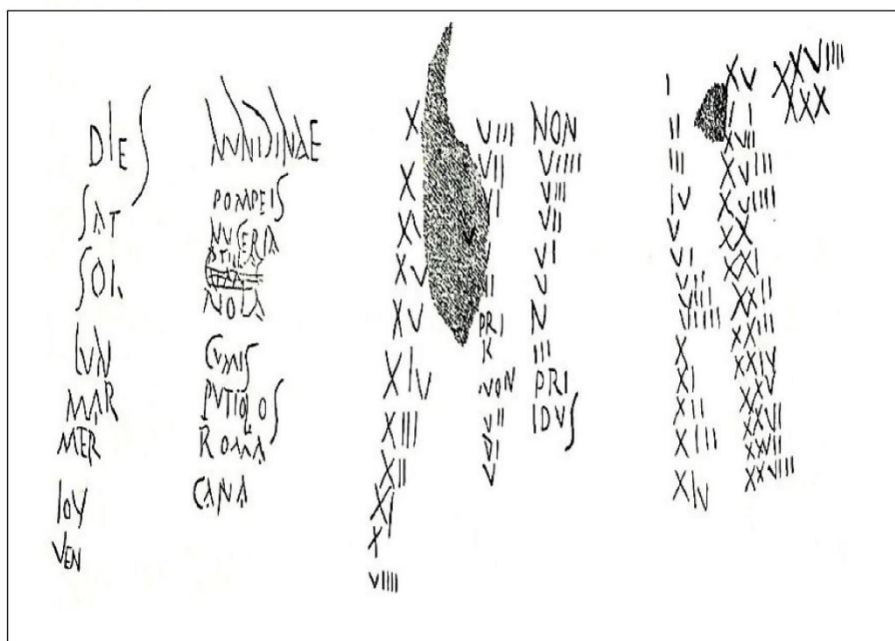 DIES
SAT
SOL
LVN
MAR
MER
IOV
VEN
NVNDINAE
POMPEIS
NVSERIA
NOLA
CVMIS
PVTIOLOS
ROMA
CAPVA
X
X
XV
XV
XIV
XIII
XII
XI
X
VIIII
VIII
VII
VI
V
II
PRI
K
NON
VII
VI
V
NON
VIIII
VIII
VII
VI
V
N
III
PRI
IDVS
I
II
III
IV
V
VI
VII
VIII
VIIII
X
XI
XII
XIII
XIV
XV
XVII
XVIII
XVIIII
XX
XXI
XXII
XXIII
XXIV
XXV
XXVI
XXVII
XXVIII
XXVIIII
XXX